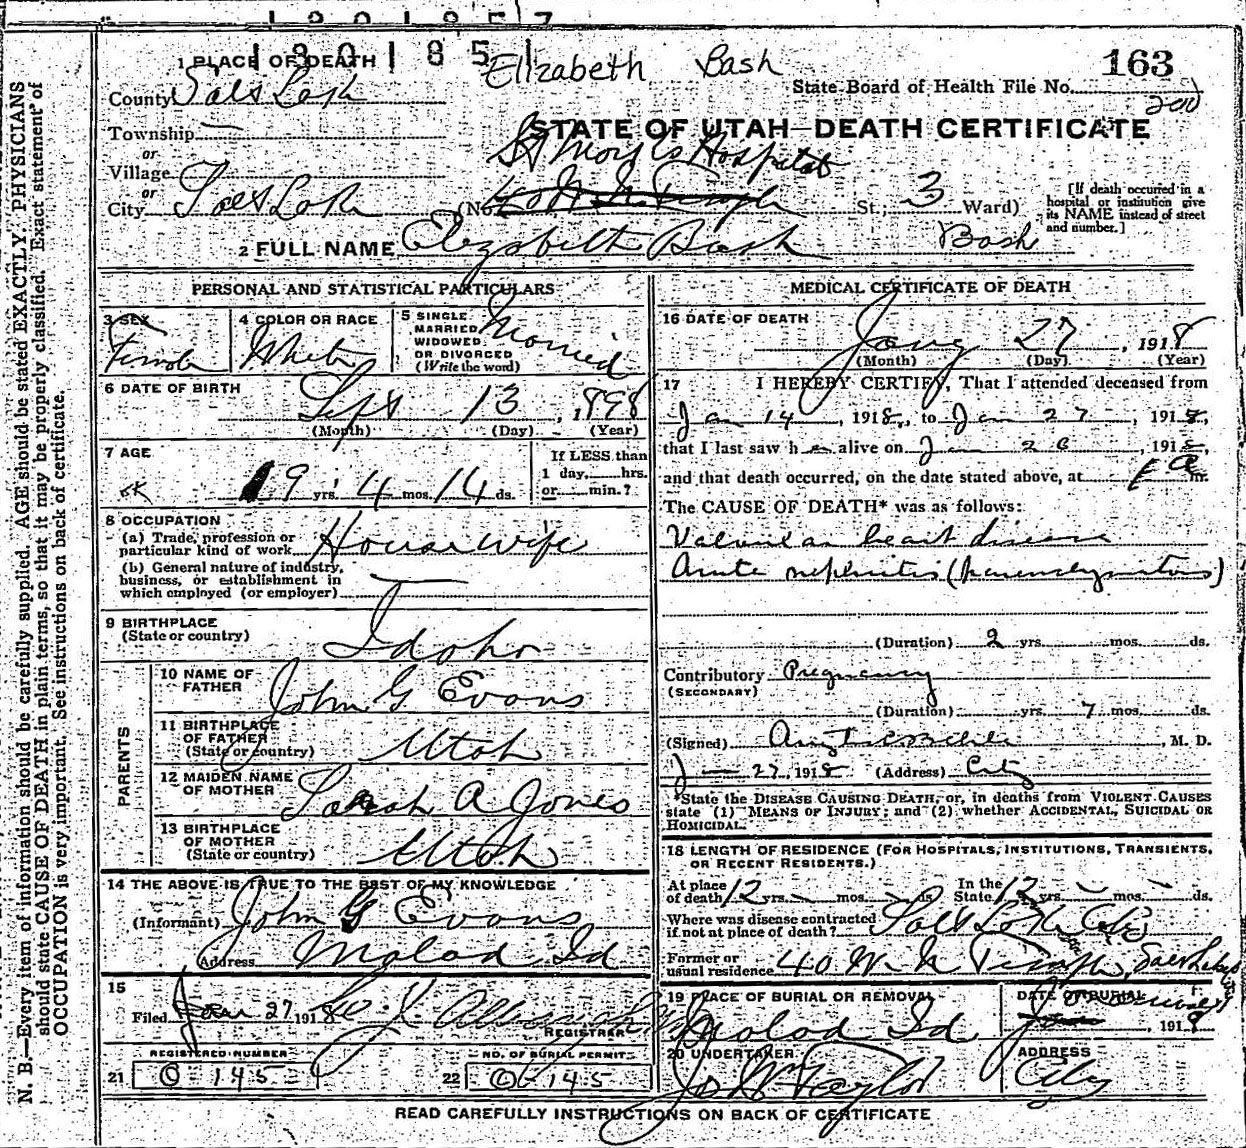 1301857
1 PLACE OF DEATH 130185 Elizabeth Bash 163
County Salt Lake State Board of Health File No. 200
Township — STATE OF UTAH—DEATH CERTIFICATE
or
Village St Marks Hospital
or
City Salt Lake (No. 40 W. N. Temple St.; 3 Ward)
[If death occurred in a
hospital or institution give
its NAME instead of street
and number.]
2 FULL NAME Elizabeth Bash Bash
PERSONAL AND STATISTICAL PARTICULARS
3 SEX
Female
4 COLOR OR RACE
White
5 SINGLE
MARRIED
WIDOWED
OR DIVORCED
(Write the word)
Married
6 DATE OF BIRTH
Sept 13, 1898
(Month) (Day) (Year)
7 AGE
OK 19 yrs. 4 mos. 14 ds.
If LESS than
1 day, hrs.
or min.?
8 OCCUPATION
(a) Trade, profession or
particular kind of work Housewife
(b) General nature of industry,
business, or establishment in
which employed (or employer) —
9 BIRTHPLACE
(State or country) Idaho
PARENTS
10 NAME OF
FATHER John G Evans
11 BIRTHPLACE
OF FATHER
(State or country) Utah
12 MAIDEN NAME
OF MOTHER Sarah A Jones
13 BIRTHPLACE
OF MOTHER
(State or country) Utah
14 THE ABOVE IS TRUE TO THE BEST OF MY KNOWLEDGE
(Informant) John G Evans
Address Malad Id
15
Filed Jan 27 1918
REGISTRAR
REGISTERED NUMBER
21 0 145
NO. OF BURIAL PERMIT
22 0 145
MEDICAL CERTIFICATE OF DEATH
16 DATE OF DEATH
Jany 27, 1918
(Month) (Day) (Year)
17 I HEREBY CERTIFY, That I attended deceased from
Jan 14, 1918, to Jan 27, 1918,
that I last saw her alive on Jan 26, 1918,
and that death occurred, on the date stated above, at m.
The CAUSE OF DEATH* was as follows:
Valvular heart disease
Acute nephritis (parenchymatous)
(Duration) 2 yrs. mos. ds.
Contributory Pregnancy
(SECONDARY)
(Duration) yrs. 7 mos. ds.
(Signed) , M. D.
J — 27, 1918 (Address) City
*State the DISEASE CAUSING DEATH, or, in deaths from VIOLENT CAUSES
state (1) MEANS OF INJURY; and (2) whether ACCIDENTAL, SUICIDAL OR
HOMICIDAL.
18 LENGTH OF RESIDENCE (FOR HOSPITALS, INSTITUTIONS, TRANSIENTS,
OR RECENT RESIDENTS.)
At place
of death 12 yrs. — mos. — ds.
In the
State 12 yrs. — mos. — ds.
Where was disease contracted
if not at place of death? Salt Lake City
Former or
usual residence 40 W N Temple, Salt Lake
19 PLACE OF BURIAL OR REMOVAL
Malad Id
DATE OF BURIAL
, 191
20 UNDERTAKER
Jos Wm Taylor
ADDRESS
City
READ CAREFULLY INSTRUCTIONS ON BACK OF CERTIFICATE
N. B.—Every item of information should be carefully supplied. AGE should be stated EXACTLY. PHYSICIANS
should state CAUSE OF DEATH in plain terms, so that it may be properly classified. Exact statement of
OCCUPATION is very important. See instructions on back of certificate.